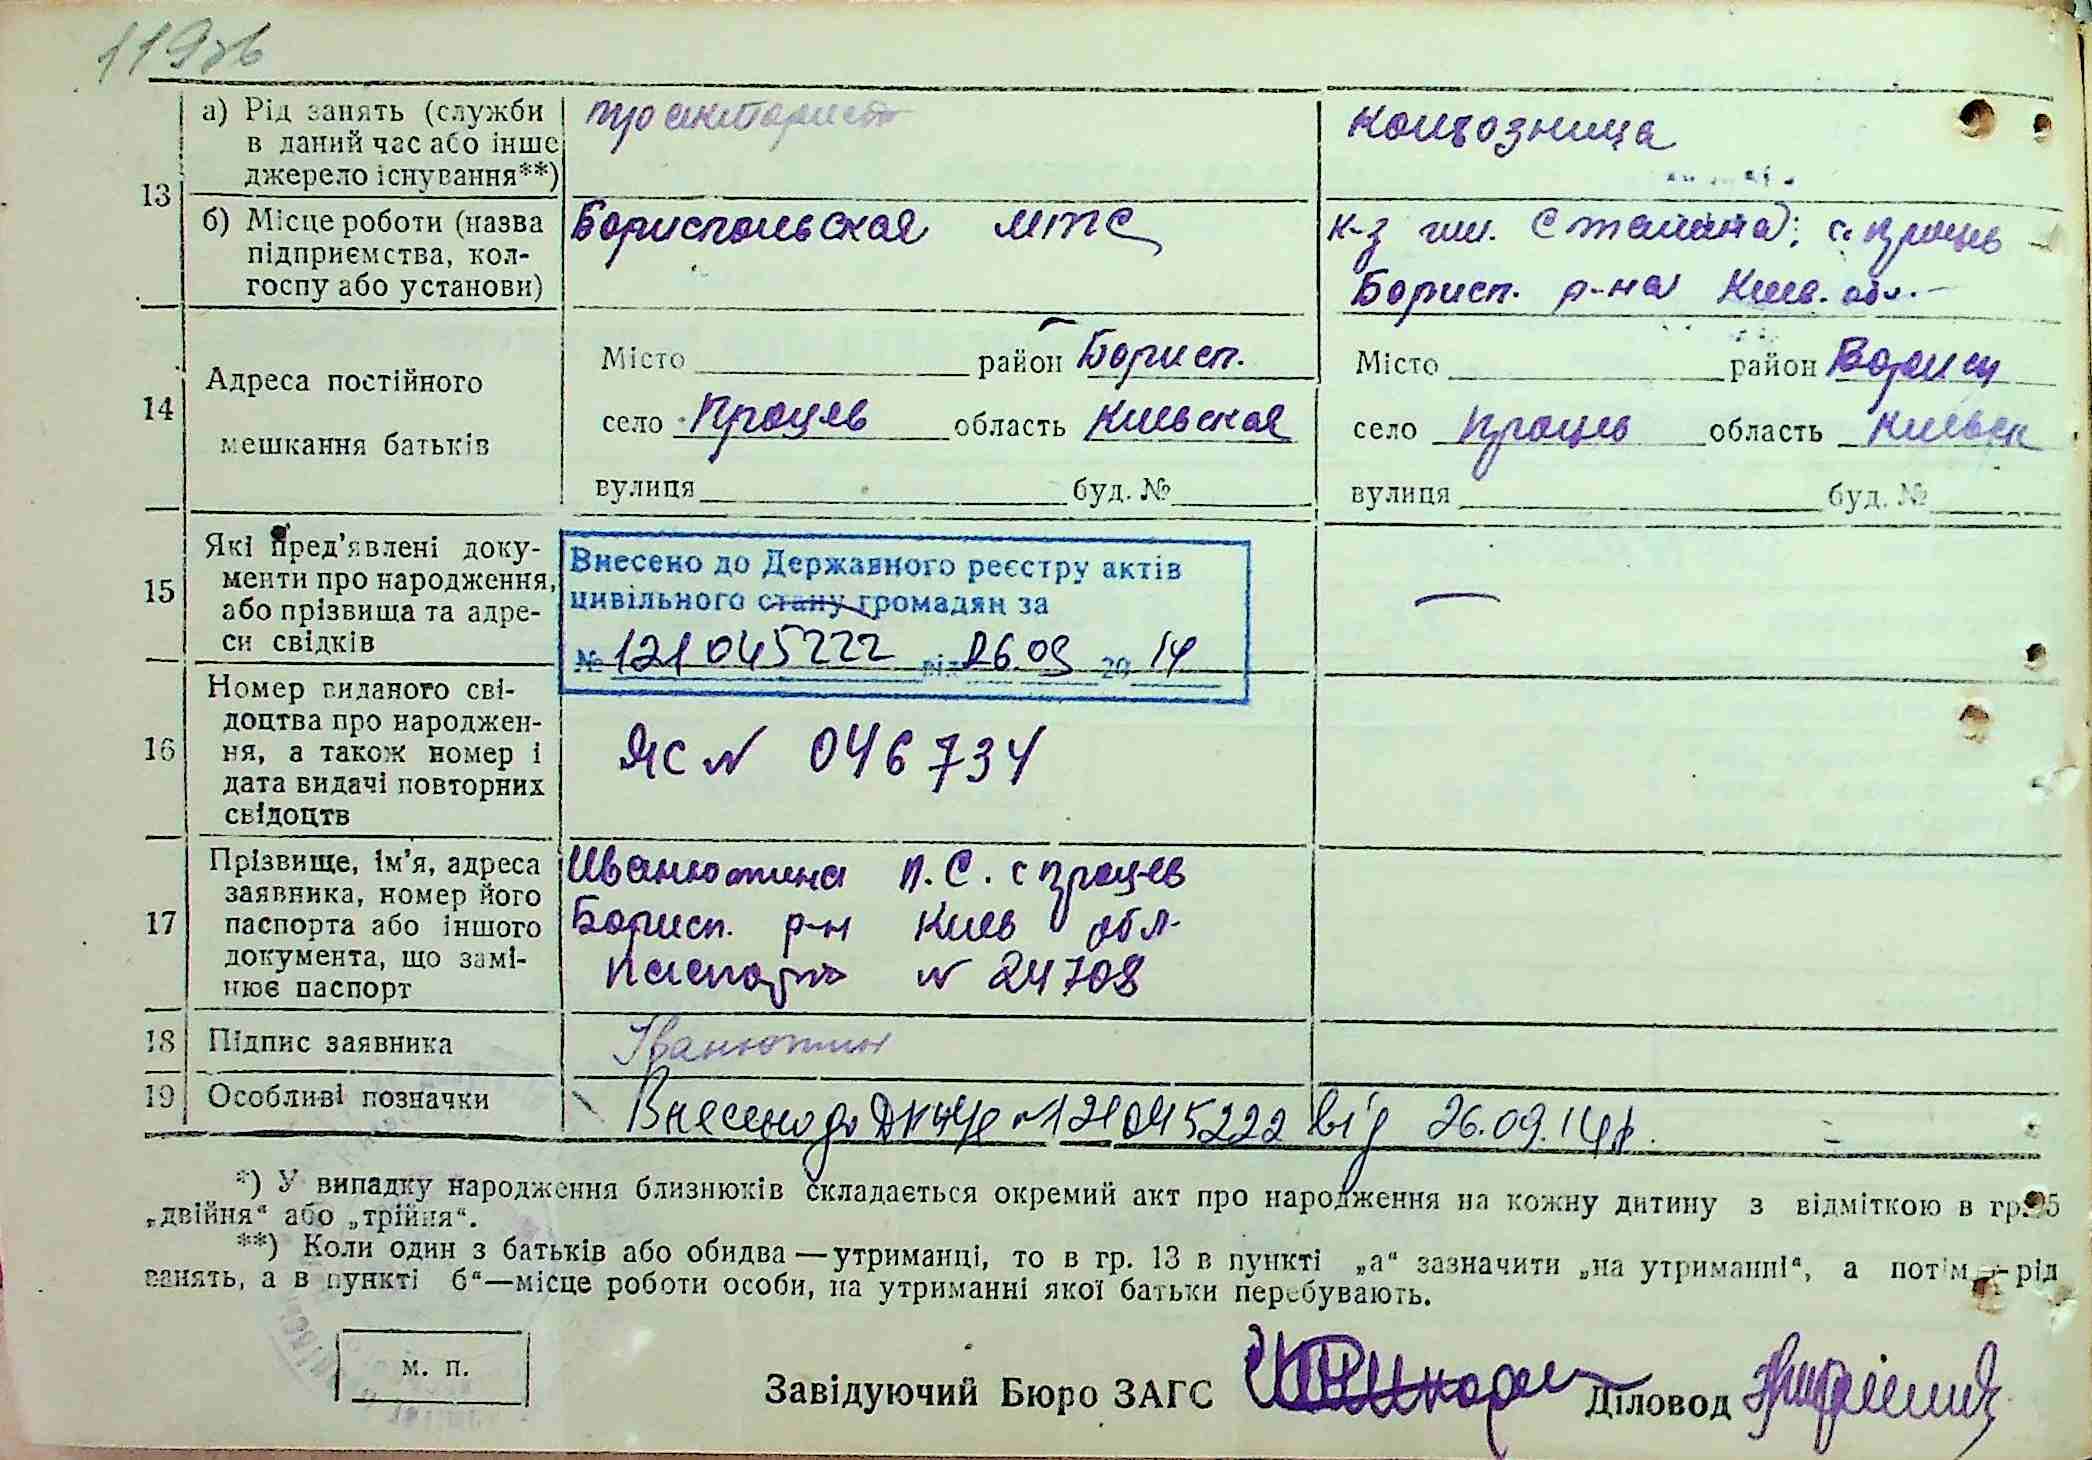 119зв
а) Рід занять (служби
в даний час або інше
джерело існування**)
колгозница
13
б) Місце роботи (назва
підприємства, кол-
госпу або установи)
Бориспольская МТС
к-з им. Сталина; с. Процев
Борисп. р-на Киев. обл.-
14
Адреса постійного
мешкання батьків
Місто район Борисп.
село Процев область Киевская
вулиця буд. №
Місто район Борисп
село Процев область Киевск
вулиця буд. №
15
Які пред'явлені доку-
менти про народження,
або прізвища та адре-
си свідків
Внесено до Державного реєстру актів
цивільного стану громадян за
№ 121045222 від 26.09 2014
—
16
Номер виданого сві-
доцтва про народжен-
ня, а також номер і
дата видачі повторних
свідоцтв
ЯС N 046734
17
Прізвище, ім'я, адреса
заявника, номер його
паспорта або іншого
документа, що замі-
нює паспорт
Иванютина П. С. с Процев
Борисп. р-н Киев обл.
Паспорт N 24708
18
Підпис заявника
Іванютин
19
Особливі позначки
Внесено до №121045222 від 26.09.14р.
*) У випадку народження близнюків складається окремий акт про народження на кожну дитину з відміткою в гр. 5
„двійня“ або „трійня“.
**) Коли один з батьків або обидва — утриманці, то в гр. 13 в пункті „а“ зазначити „на утриманні“, а потім — рід
занять, а в пункті б“—місце роботи особи, на утриманні якої батьки перебувають.
м. п.
Завідуючий Бюро ЗАГС
Діловод